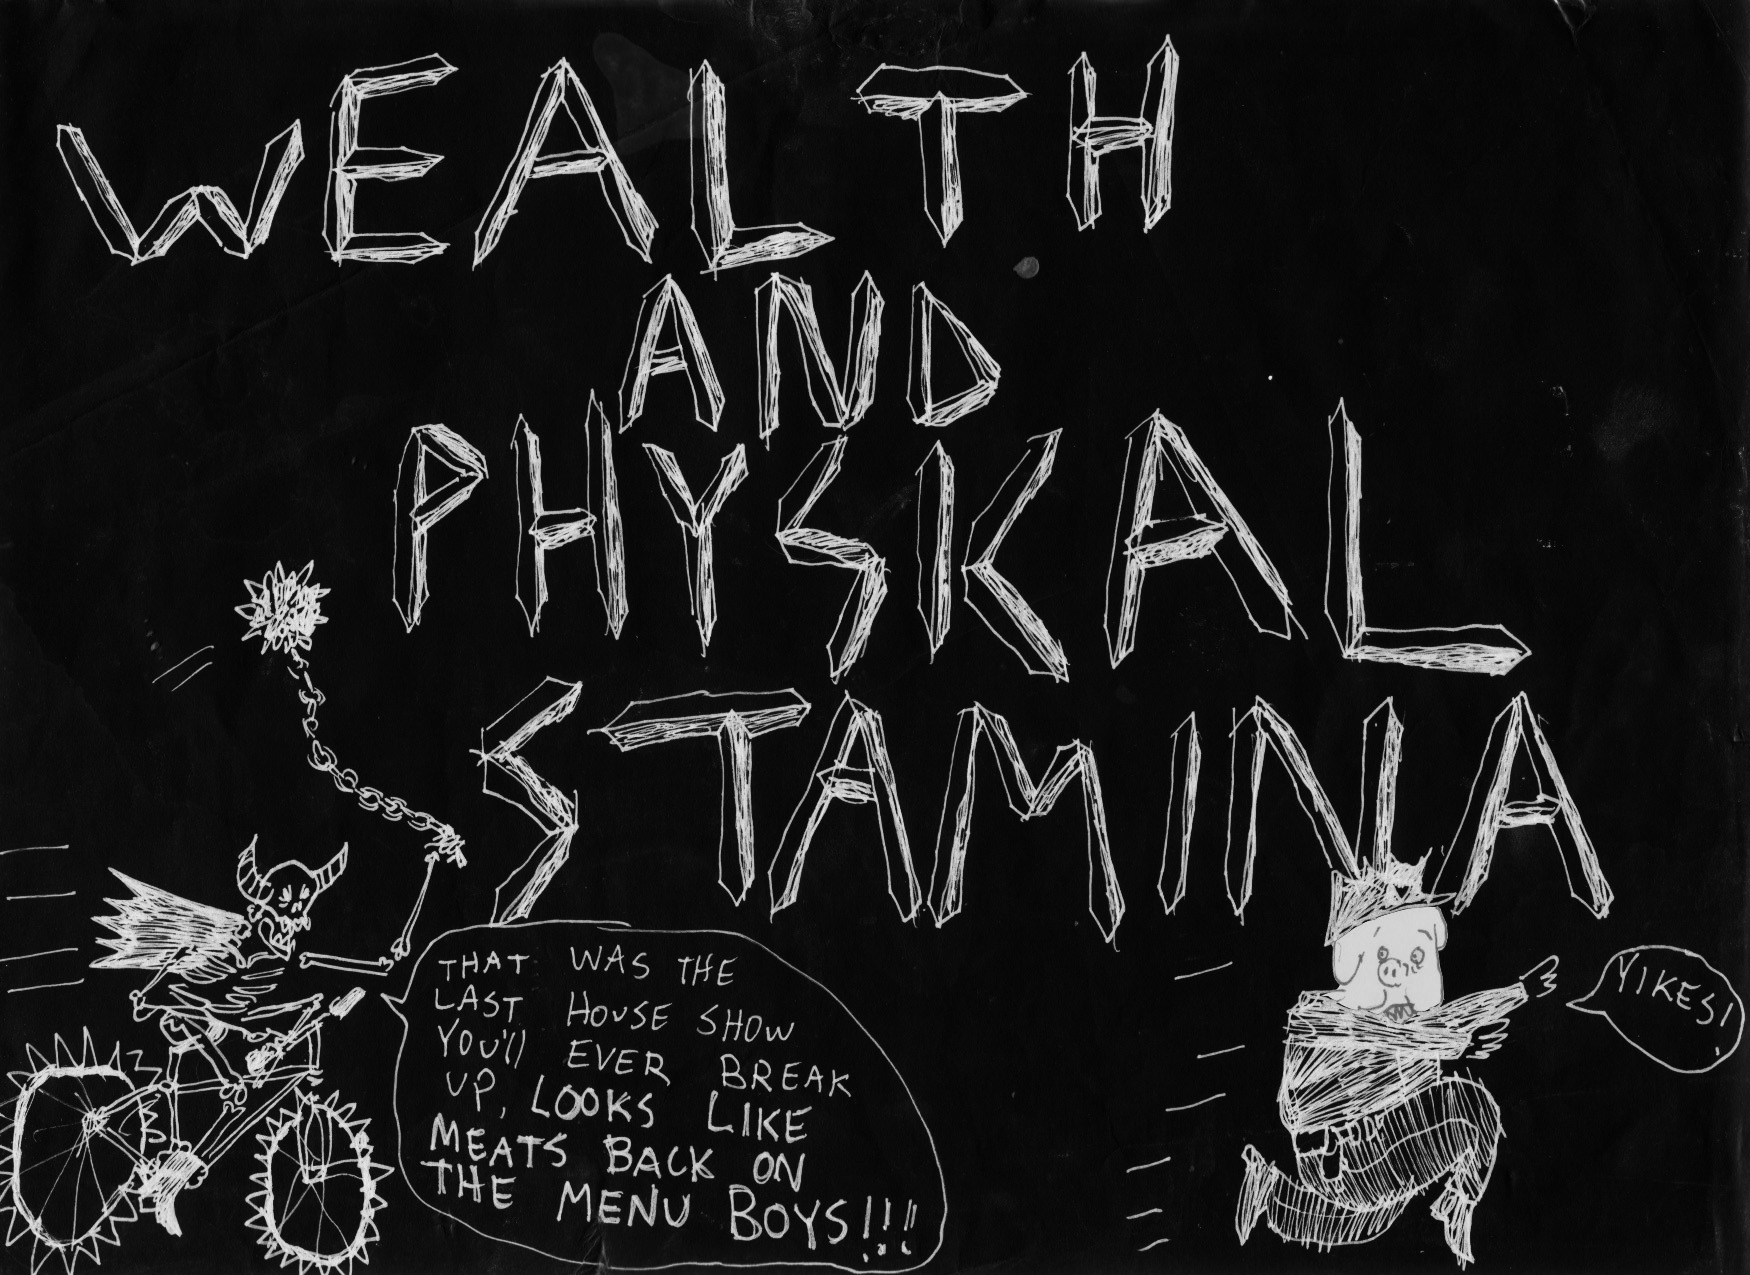 WEALTH
AND
PHYSIKAL
STAMINA
THAT WAS THE
LAST HOUSE SHOW
YOU'll EVER BREAK
UP, LOOKS LIKE
MEATS BACK ON
THE MENU BOYS!!!
YIKES!